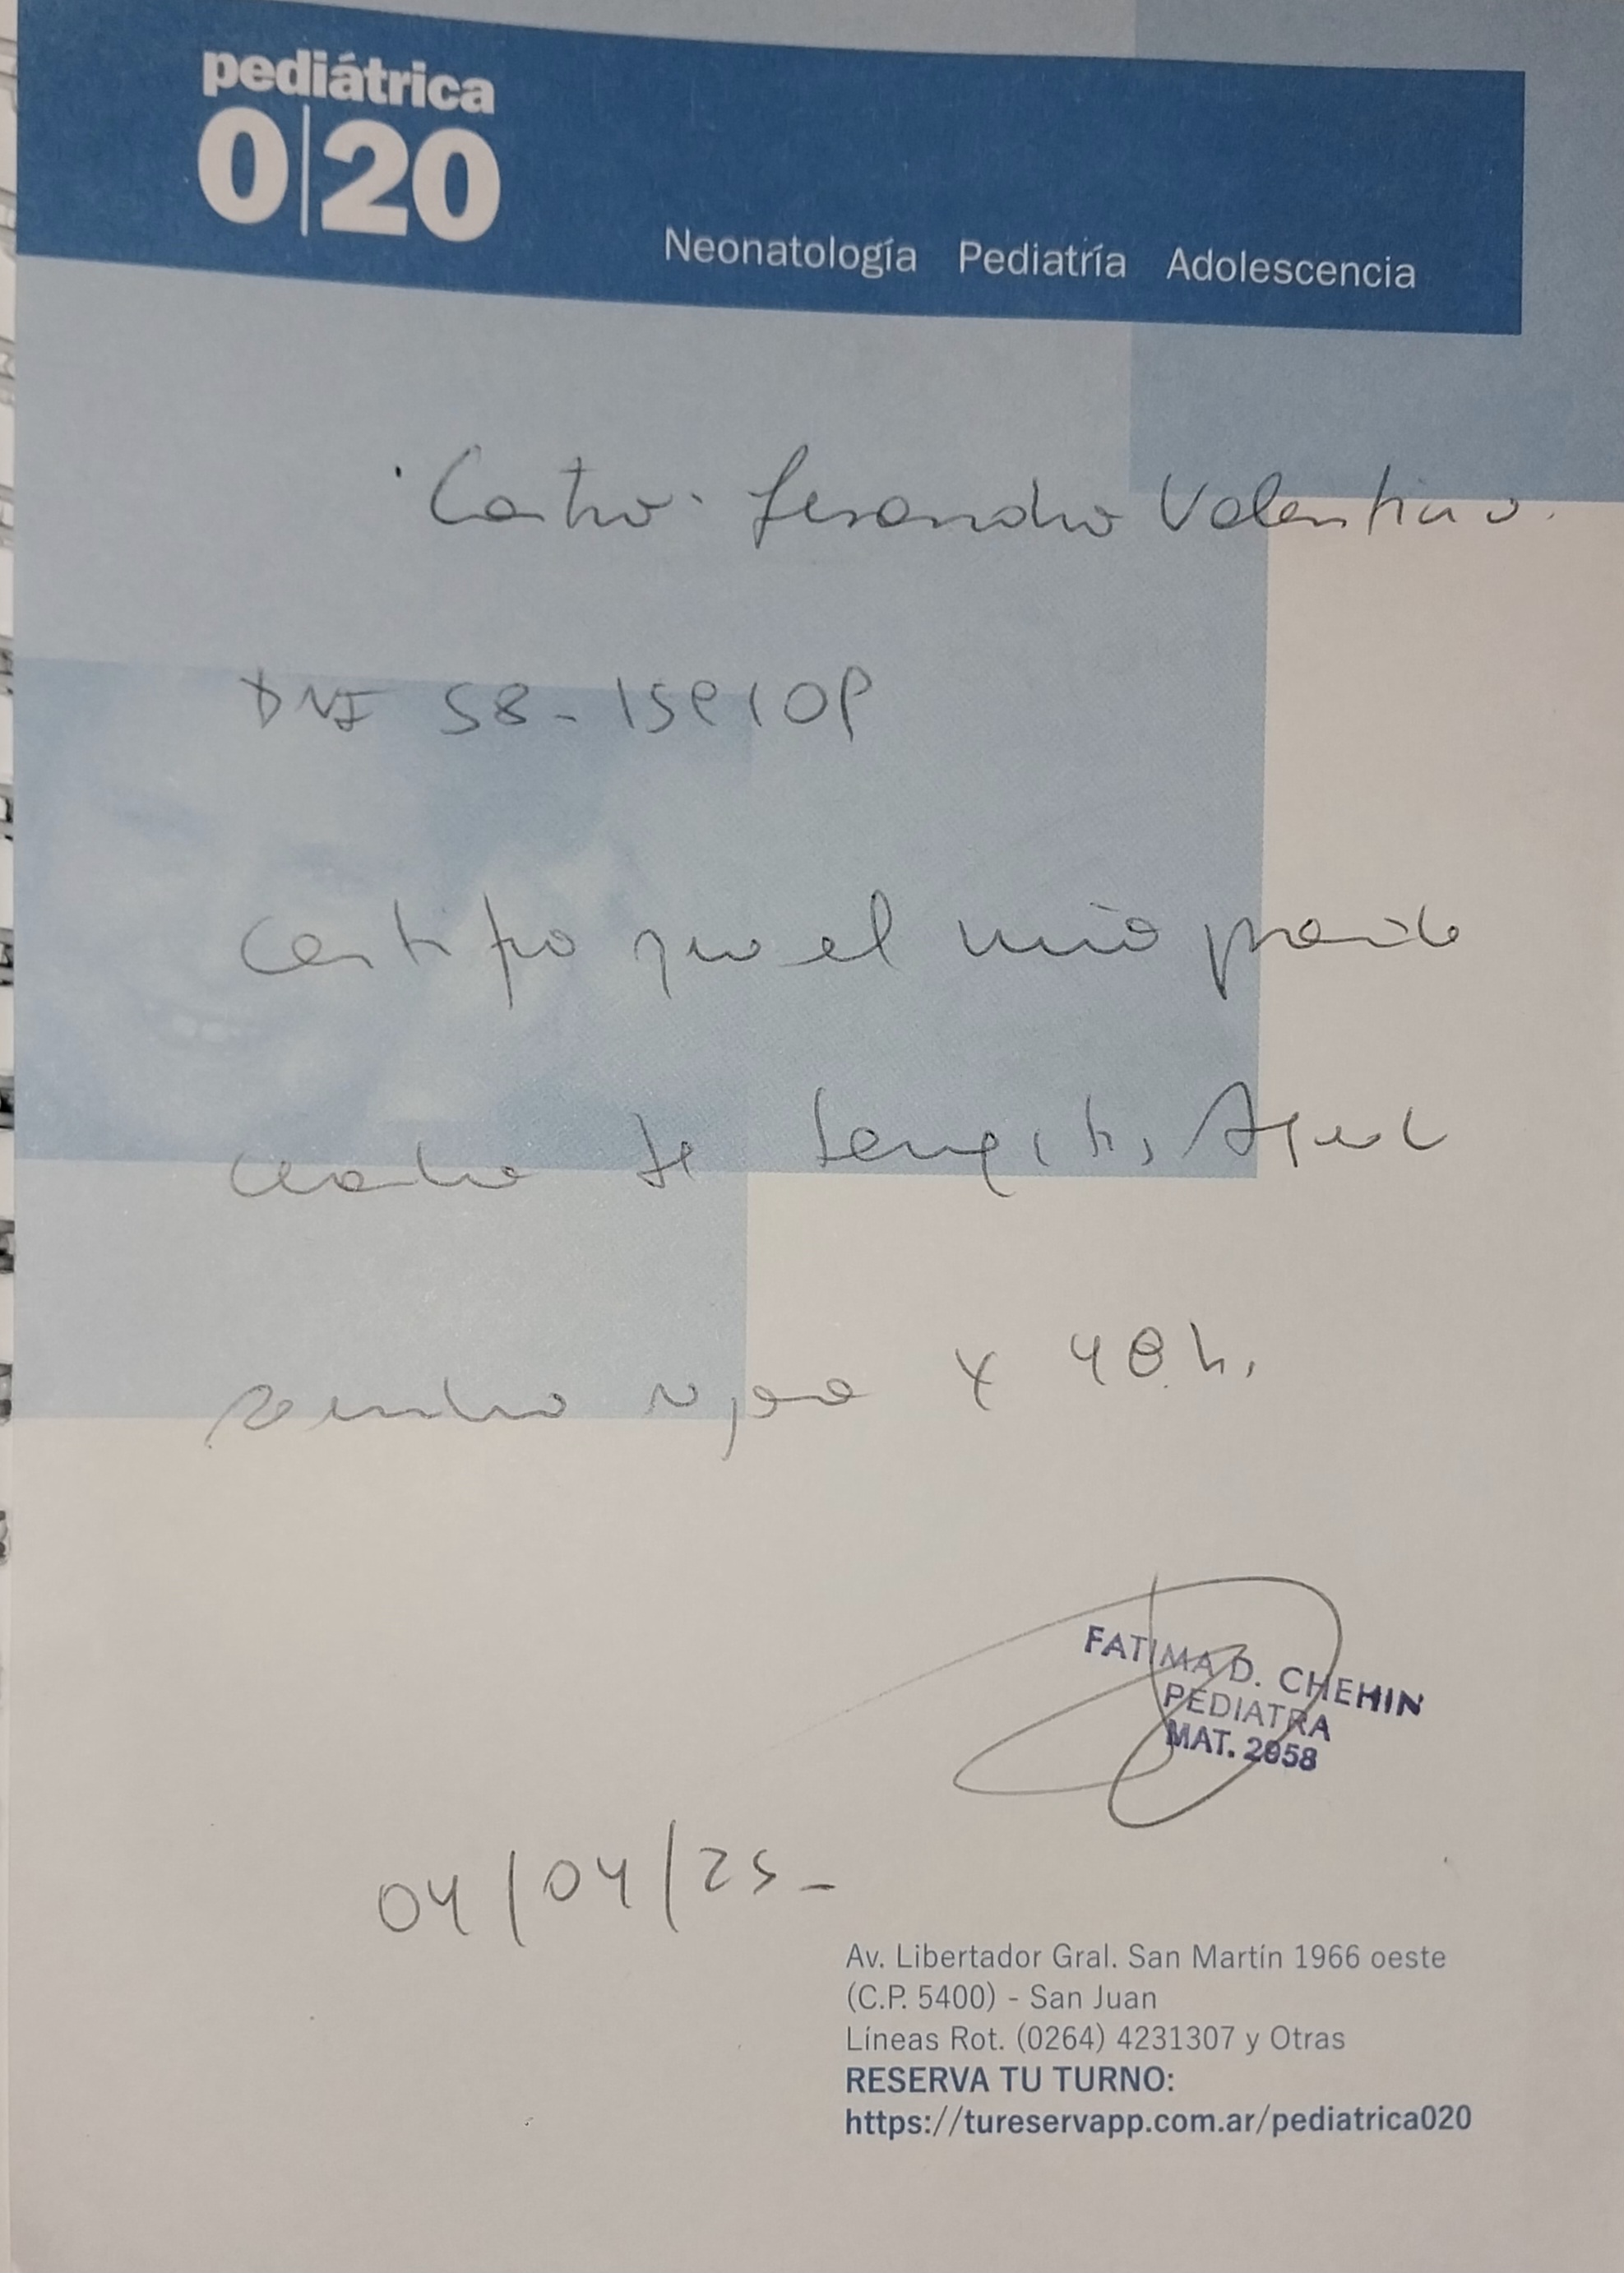 pediátrica
0|20
Neonatología Pediatría Adolescencia
Castro. Lisandro Valentino.
DNI 58-
Certifico que el niño presenta
cuadro de Laringitis Aguda
reposo x 48 h.
FATIMA D. CHEHIN
PEDIATRA
MAT. 2958
04/04/25_
Av. Libertador Gral. San Martín 1966 oeste
(C.P. 5400) - San Juan
Líneas Rot. (0264) 4231307 y Otras
RESERVA TU TURNO:
https://tureservapp.com.ar/pediatrica020